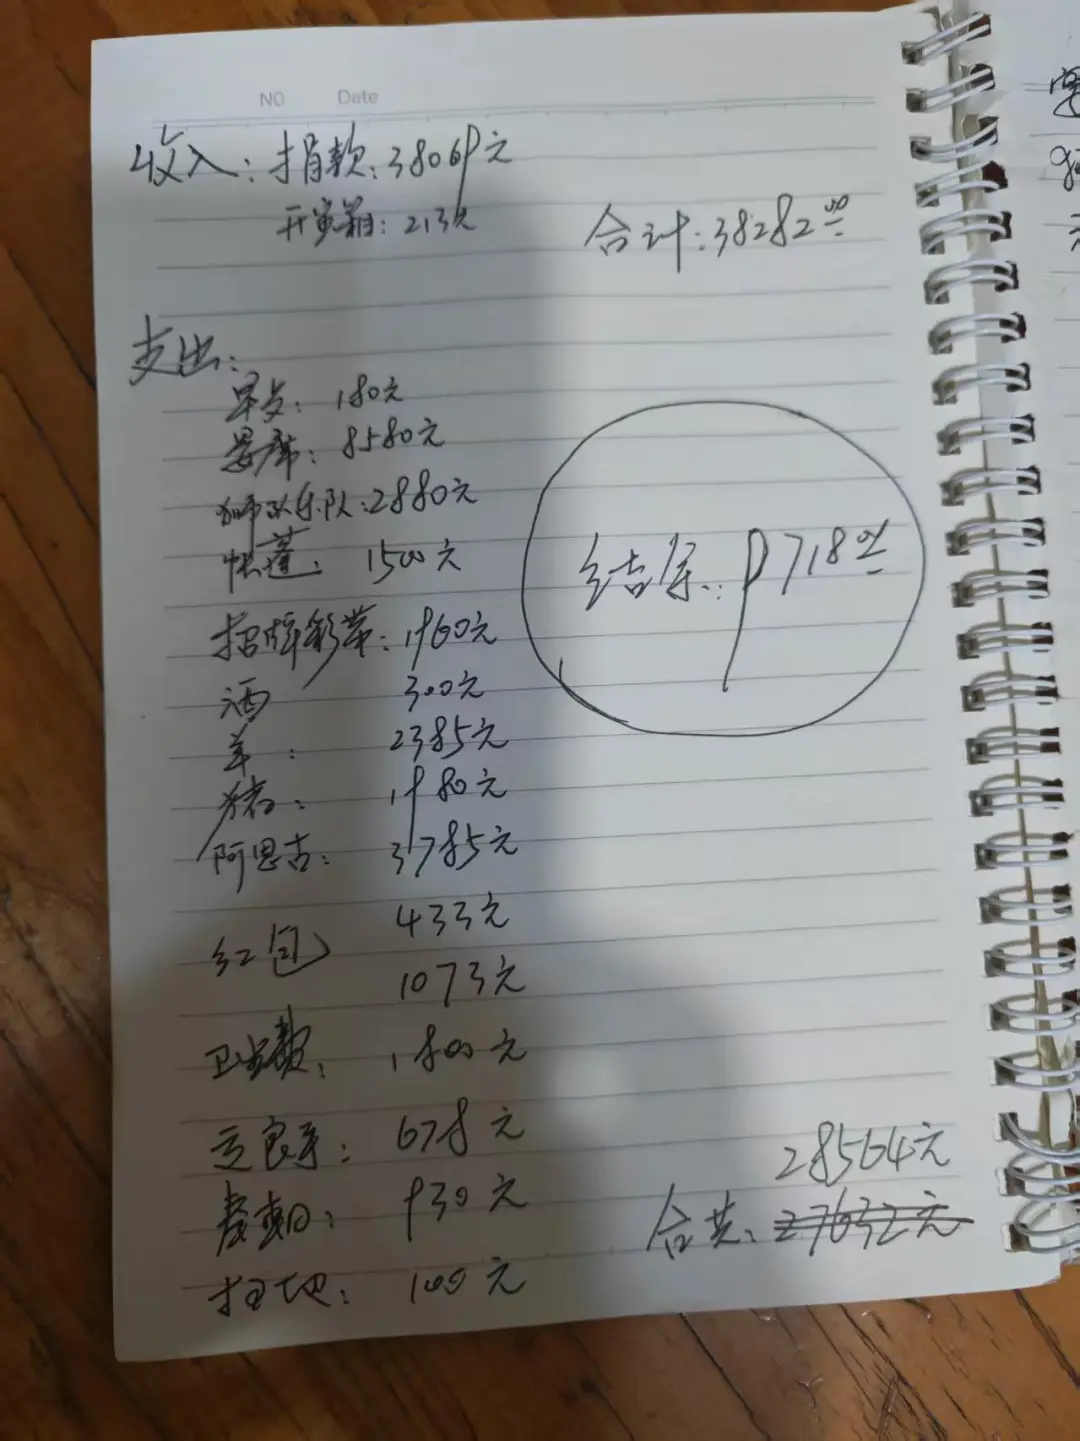 NO Date
收入：捐款：38069元
213元 合计：38282.00
支出：
早点：180元
宴席：8580元
狮队乐队：2880元
帐蓬：1500元
招牌彩带：1960元
酒 300元
羊： 2385元
猪： 1980元
阿恩古： 3785元
433元
红包
1073元
卫生费： 1800元
678元
28564元
930元
合共：27632元
扫地： 100元
结余：9718.00